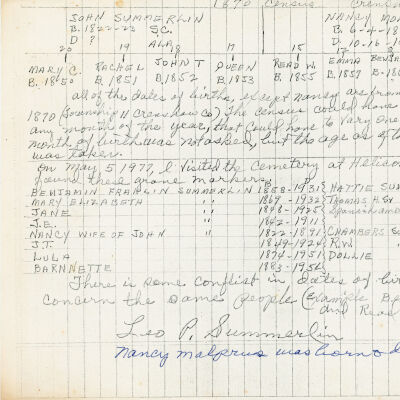 1870 Census Crensh
JOHN SUMMERLIN NANCY MO
B. 1822-23 S.C. B. 6-4-18
D ? ALA D. 10-16-1
20 19 18 17 15 17 8
MARY C. RACHEL JOHN T QUEEN READ W. EMMA BENJA
B. 1850 B. 1851 B. 1852 B. 1853 B. 1855 B. 1857 B-186
all of the dates of births, except nancy are from
1870 (Township 11 Crenshaw Co) The census could have
any month of the year, that could have to vary one
month of birth was not asked, but the age as of
was taken.
On May 5 1977, I visited the Cemetery at Helicon
found these grave markers,
BENJAMIN FRANKLIN SUMMERLIN 1858-1931 HATTIE SUM
MARY ELIZABETH " 1869-1932 THOMAS H. SR
JANE " 1848-1925
J.E. " 1842-1911
NANCY WIFE OF JOHN " 1822-1891 CHAMBERS S
J.T. 1849-1924 R.W.
LULA 1874-1951 DOLLIE
BARNNETTE 1883-1956
There is some conflict in dates of bir
concern the same people (Example Be
and Read
Leo P. Summerlin
Nancy malprus was born &d